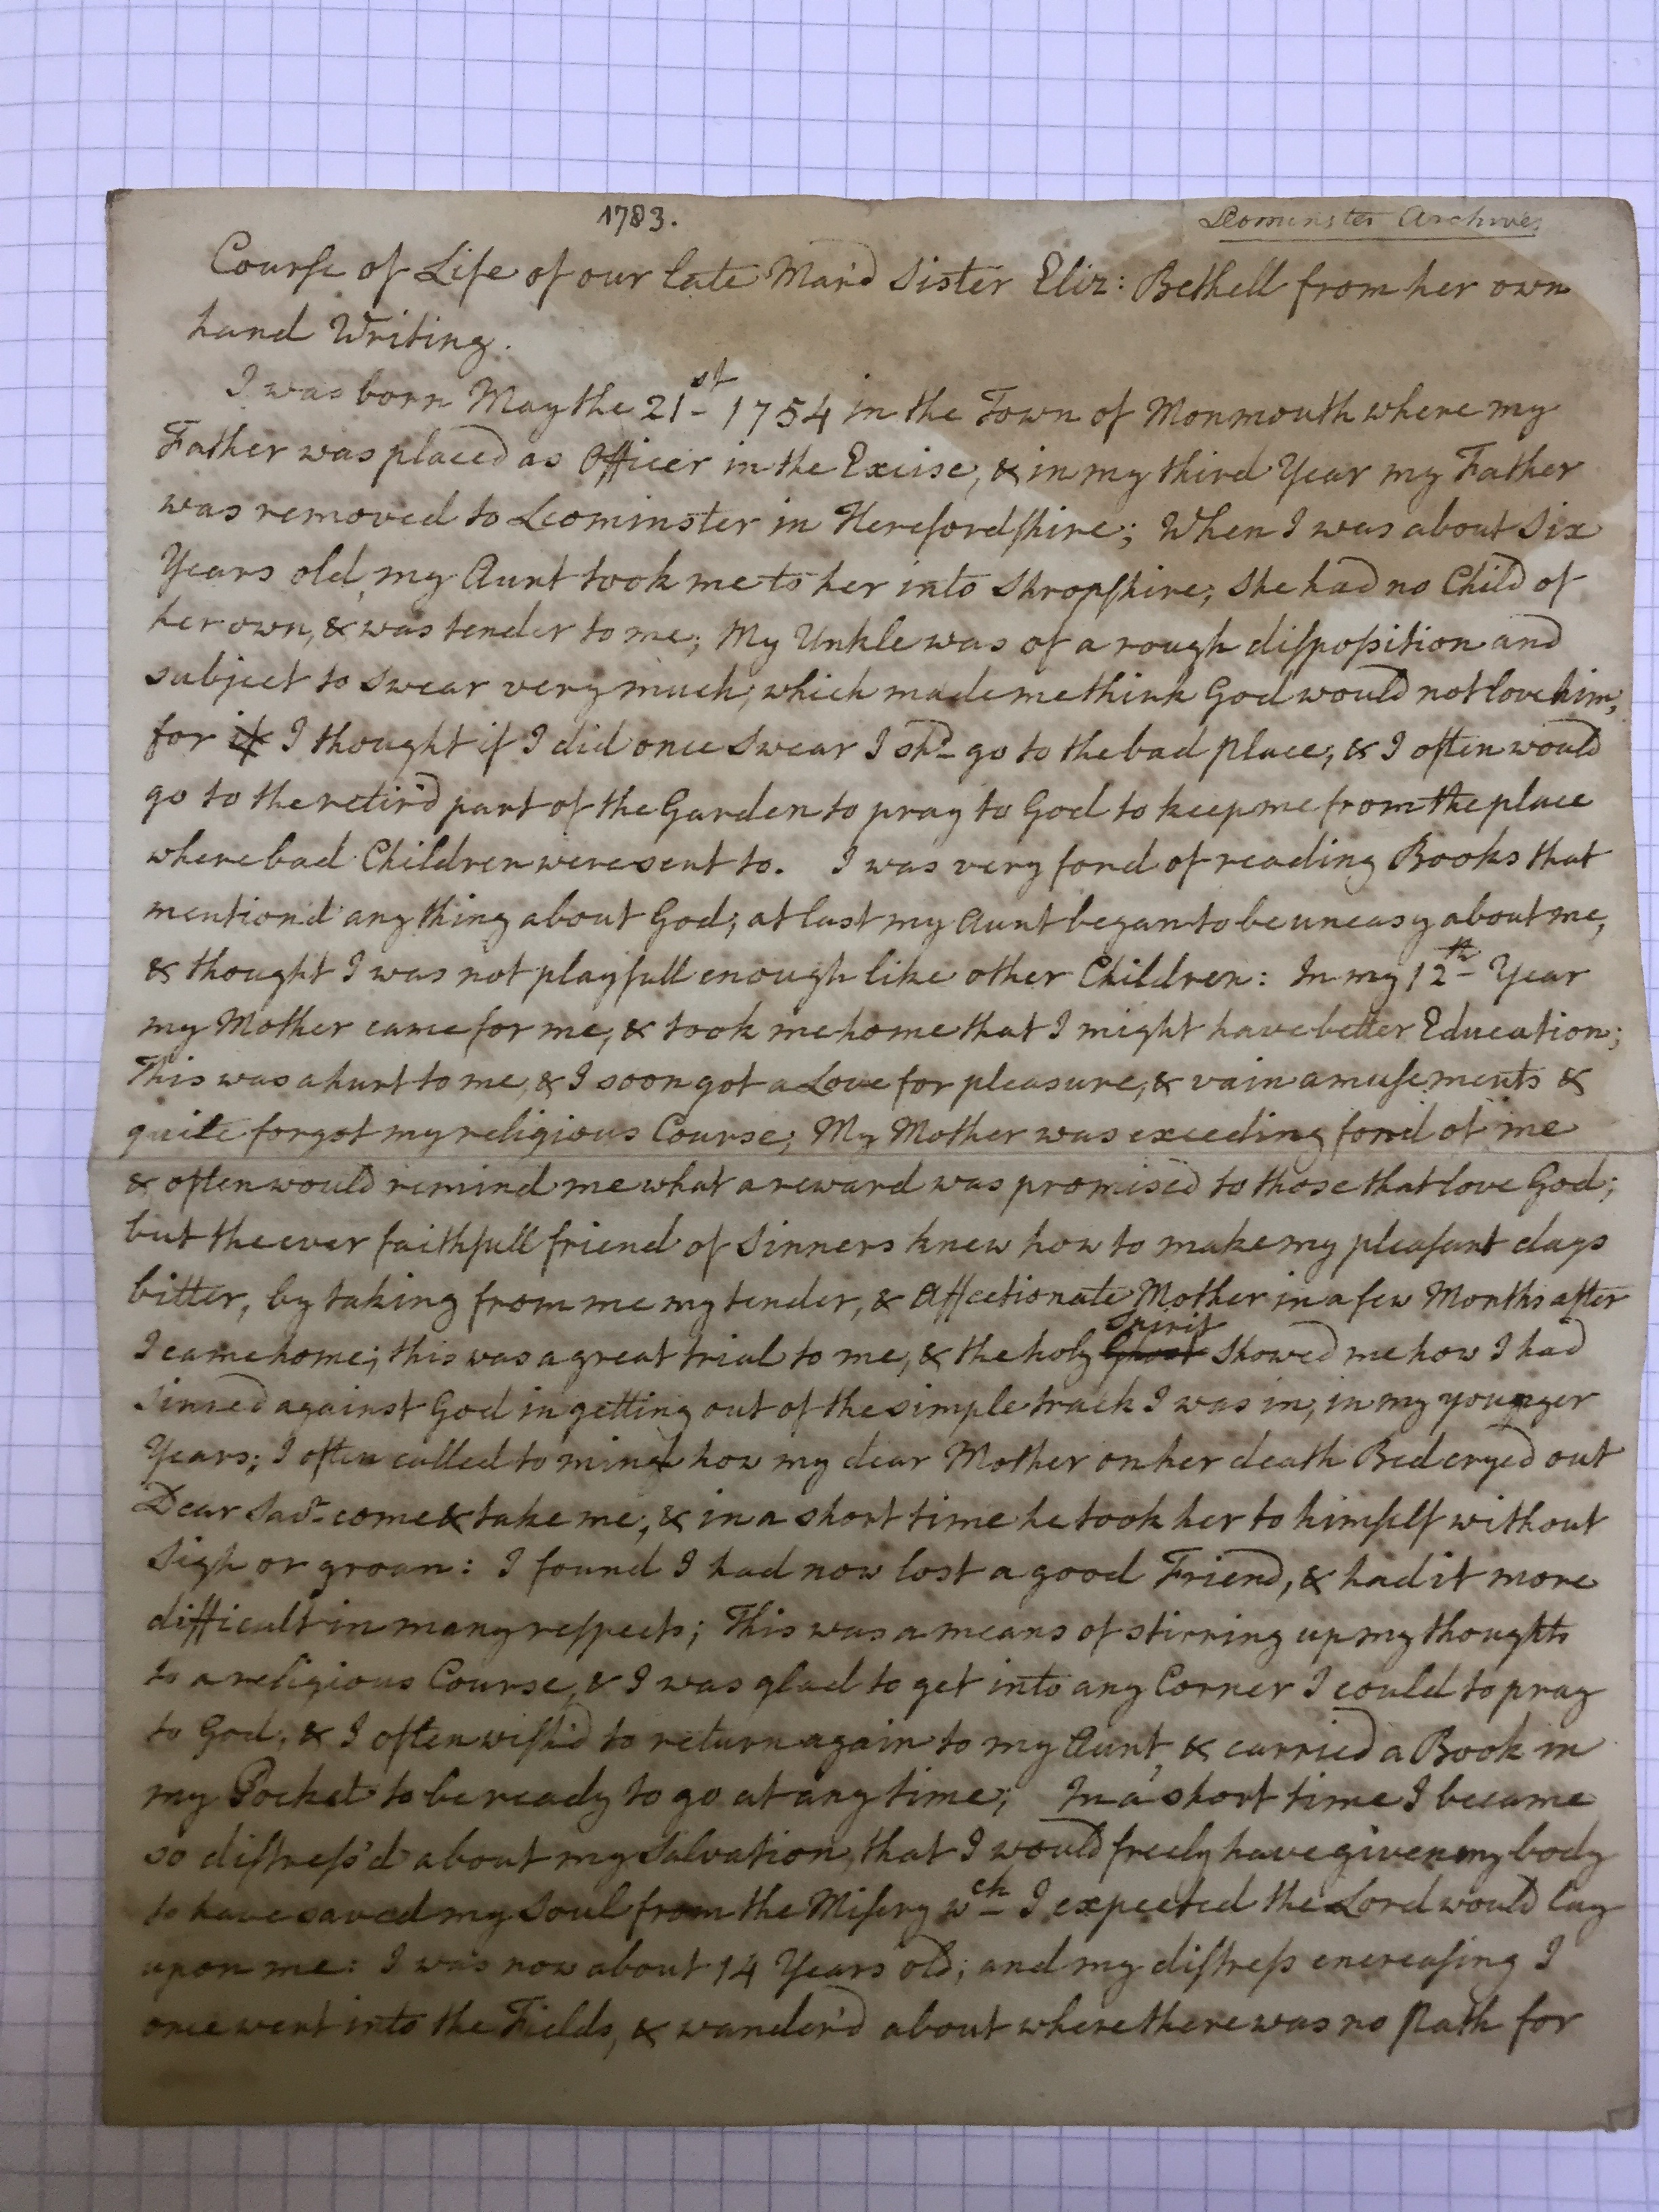 1783.
Leominster Archives
Course of Life of our late Mar'd Sister Eliz: Bethell from her own
hand Writing.
I was born May the 21st 1754 in the Town of Monmouth where my
Father was placed as Officer in the Excise, & in my third Year my Father
was removed to Leominster in Herefordshire; When I was about Six
Years old, my Aunt took me to her into Shropshire; She had no Child of
her own, & was tender to me; My Unkle was of a rough disposition and
subject to Swear very much; which made me think God would not love him,
for if I thought if I did once Swear I shd go to the bad place; & I often would
go to the retir'd part of the Garden to pray to God to keep me from the place
where bad Children were sent to. I was very fond of reading Books that
mention'd any thing about God; at last my Aunt began to be uneasy about me,
& thought I was not playfull enough like other Children: In my 12th Year
my Mother came for me, & took me home that I might have better Education;
This was a hurt to me, & I soon got a Love for pleasure, & vain amusements &
quite forgot my religious Course; My Mother was exceeding fond of me
& often would remind me what a reward was promised to those that love God;
but the ever faithfull friend of Sinners knew how to make my pleasant days
bitter, by taking from me my tender, & Affectionate Mother in a few Months after
I came home; this was a great trial to me, & the holy Ghost Spirit Showed me how I had
Sinned against God in getting out of the simple track I was in, in my younger
Years; I often called to mind how my dear Mother on her death Bed cryed out
Dear Savr come & take me, & in a short time he took her to himself without
Sigh or groan: I found I had now lost a good Friend, & had it more
difficult in many respects; This was a means of stirring up my thoughts
to a religious Course, & I was glad to get into any Corner I could to pray
to God, & I often wish'd to return again to my Aunt, & carried a Book in
my Pocket to be ready to go at any time; In a short time I became
so distress'd about my Salvation, that I would freely have given my body
to have saved my Soul from the Misery wch I expected the Lord would lay
upon me: I was now about 14 Years old; and my distress encreasing I
once went into the Fields, & wander'd about where there was no Path for